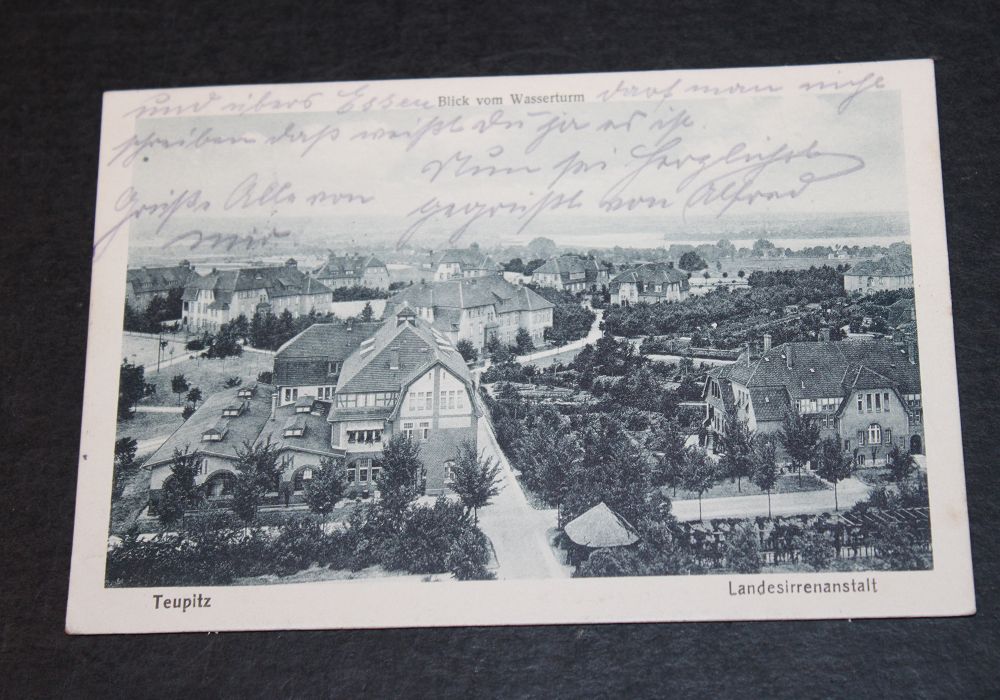 Blick vom Wasserturm
und übers Essen darf man nicht
schreiben daß weißt du ja es ist.
Nun sei herzlichst
Grüße Alle von gegrüßt von Alfred
mir
Teupitz
Landesirrenanstalt